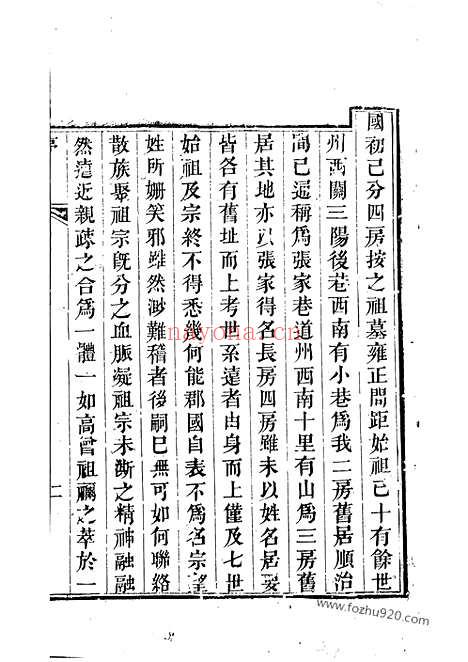 國初已分四房按之祖墓雍正間距始祖已十有餘世
州西關三陽後巷西南有小巷爲我二房舊居順治
間已遍稱爲張家巷道州西南十里有山爲三房舊
居其地亦以張家得名長房四房雖未以姓名居要
皆各有舊址而上考世系遠者由身而上僅及七世
始祖及宗終不得悉幾何能郡國自表不爲名宗望
姓所姍笑邪雖然渺難稽者後嗣巳無可如何聯絡
散族聚祖宗旣分之血脈凝祖宗未斷之精神融融
然遠近親疎之合爲一體一如高曾祖禰之萃於一
二
nayona.cn
www.fozhu920.com